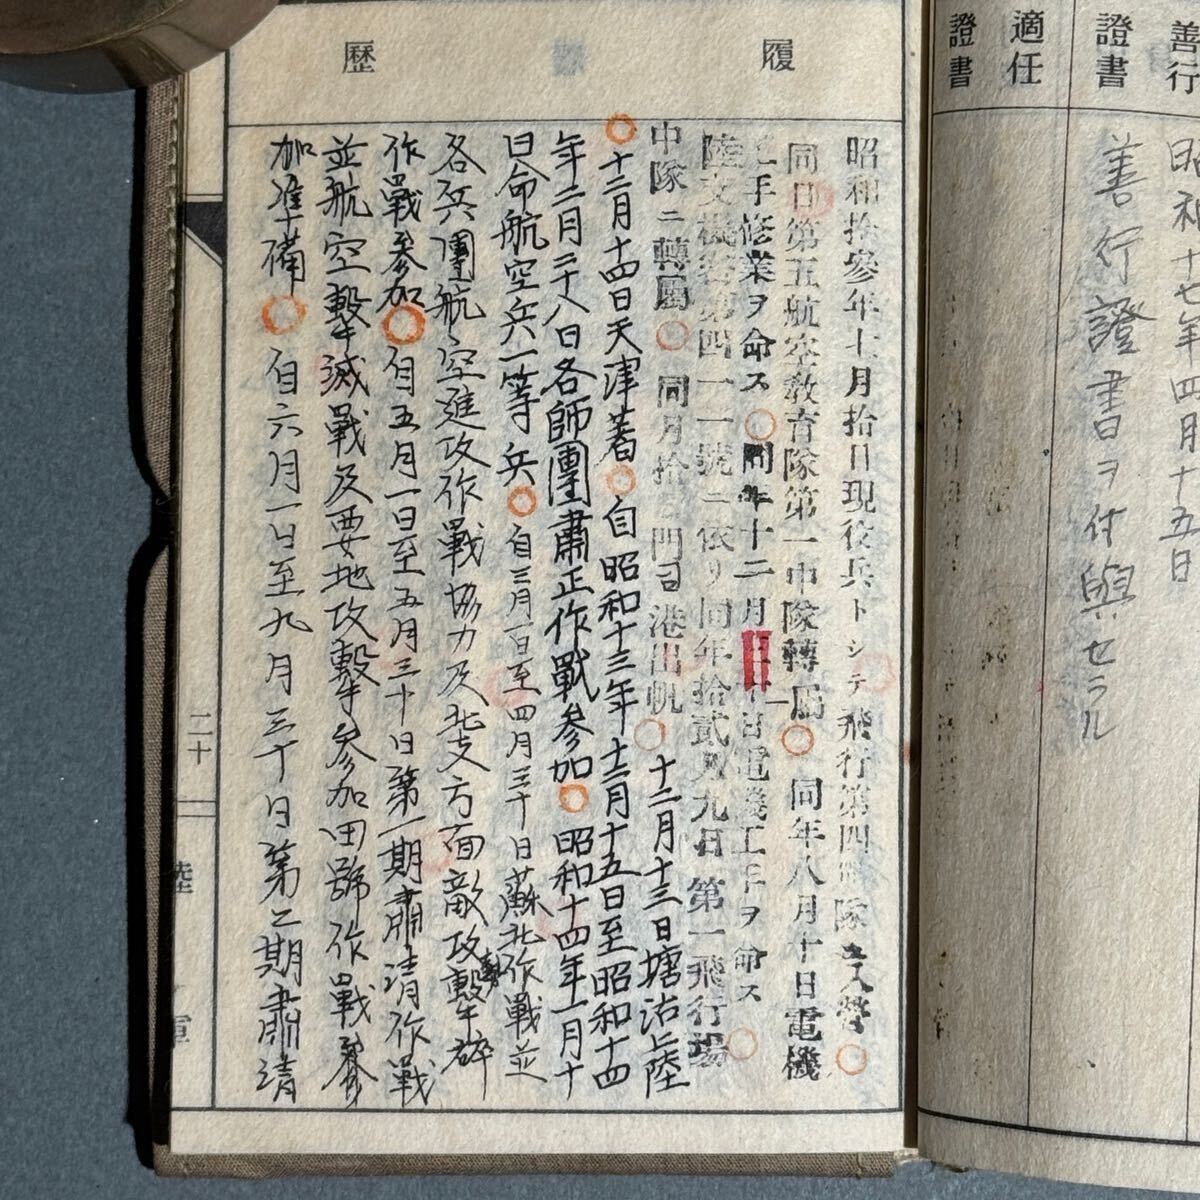 善行
證書
昭和十七年四月十五日
善行證書ヲ付與セラル
適任
證書
履歷
昭和拾參年七月拾日現役兵トシテ飛行第四聯隊ニ入營
同日第五航空教育隊第一中隊轉屬 同年八月十日電機
工手修業ヲ命ス 同年十二月 十日電機工手ヲ命ス
陸支機密第四一一號ニ依リ同年拾貳月九日第一飛行場
中隊ニ轉屬 同月拾 門司港出帆 十二月十三日塘沽上陸
十二月十四日天津着 自昭和十三年十二月十五日至昭和十四
年二月二十八日各師團肅正作戰參加 昭和十四年一月十
日命航空兵一等兵 自三月一日至四月三十日蘇北作戰並
各兵團航空進攻作戰協力及北支方面敵攻擊
作戰參加 自五月一日至五月三十日第一期肅清作戰
並航空擊滅戰及要地攻擊參加田號作戰參
加準備 自六月一日至九月三十日第二期肅清
二十
陸軍